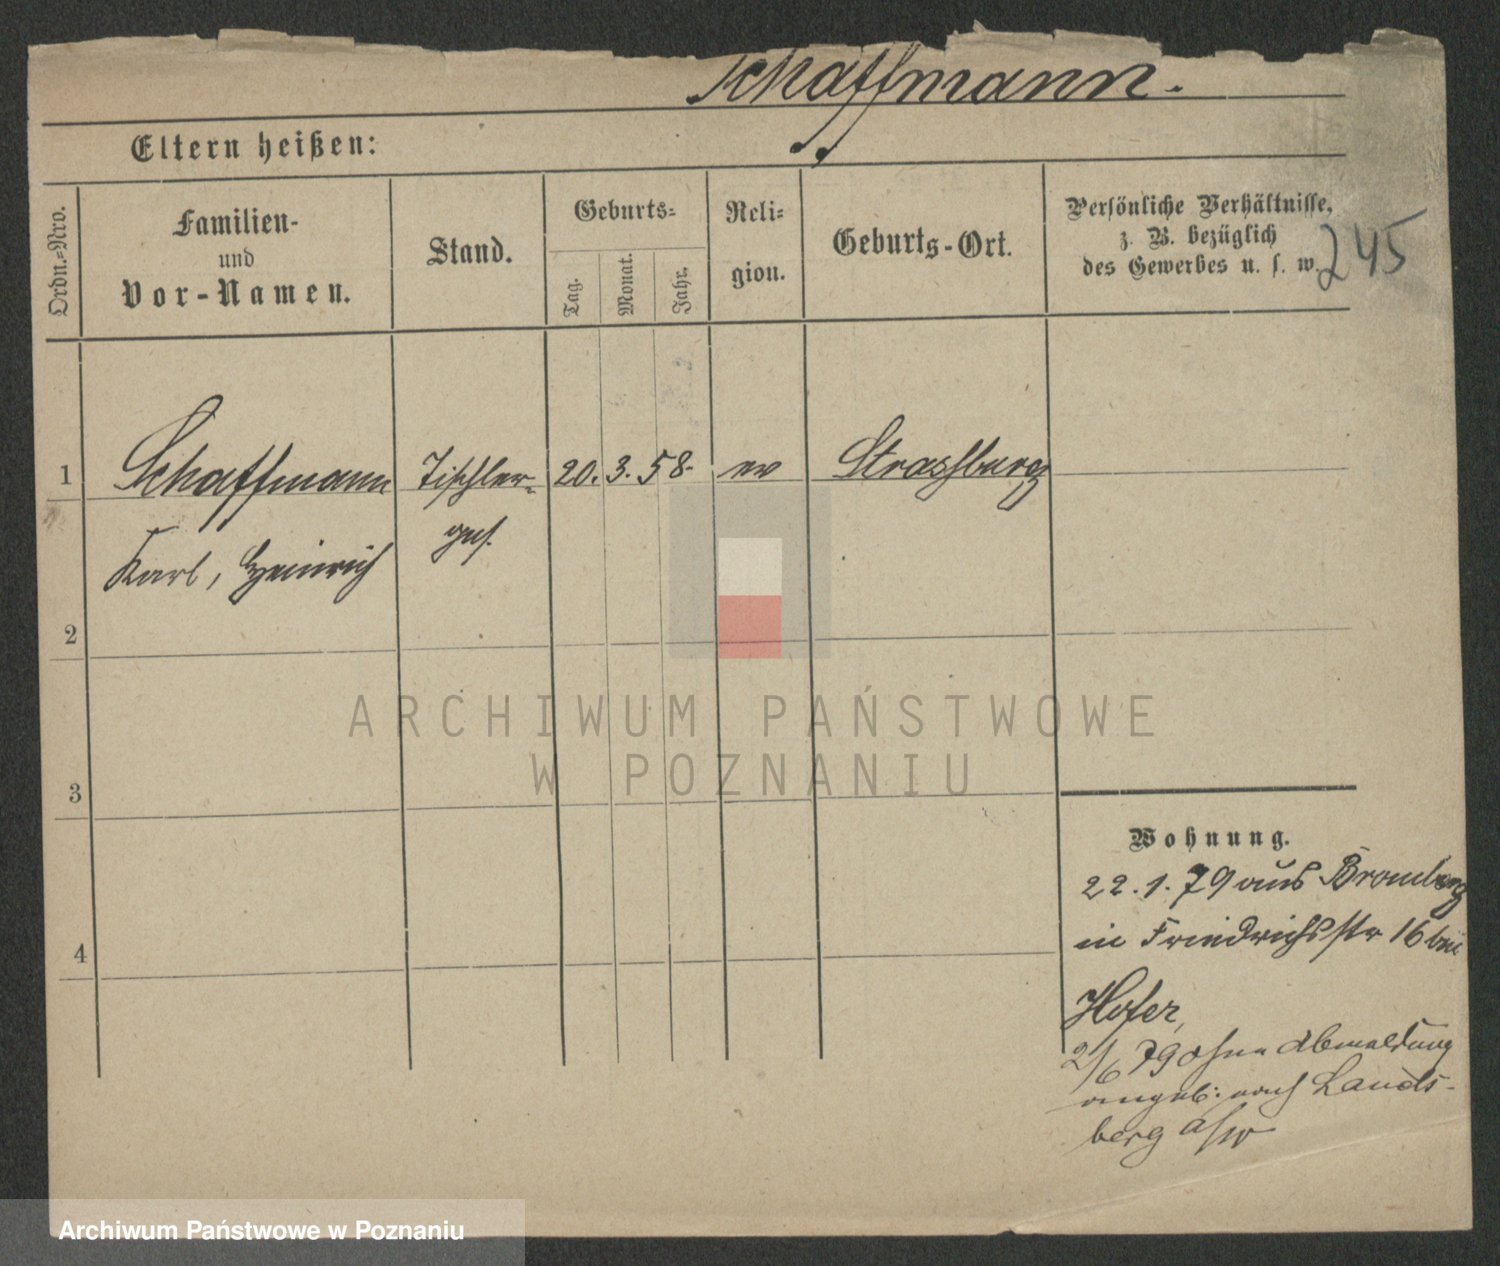 Schaffmann.
Eltern heißen:
Ordn.=Nro.
Familien-
und
Vor-Namen.
Stand.
Geburts=
Tag.
Monat.
Jahr.
Reli=
gion.
Geburts-Ort.
Persönliche Verhältnisse,
z. B. bezüglich
des Gewerbes u. s. w.
245
1 Schaffmann Tischler- 20. 3. 58. ev Strasburg
Karl, Heinrich ges.
2
3
4
Wohnung.
22.1.79 aus Bromberg
in Friedrichsstr 16 bei
Hofer,
2/6 79 ohne Abmeldung
angeb: nach Lands-
berg a/w
ARCHIWUM PAŃSTWOWE
W POZNANIU
Archiwum Państwowe w Poznaniu